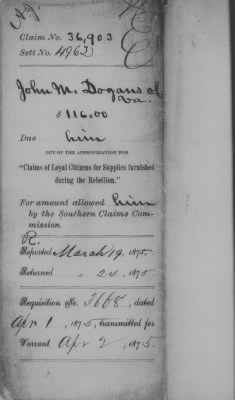 Claim No. 36,903
Sett No. 4963
John M.
Va.
$ 116.00
Due him
OUT OF THE APPROPRIATION FOR
"Claims of Loyal Citizens for Supplies furnished
during the Rebellion."
For amount allowed him
by the Southern Claims Com-
mission.
R.
Reported March 19, 1875.
Returned " 24, 1875
Requisition No. 3668, dated
Apr 1, 1875, transmitted for
Warrant Apr 2, 1875.